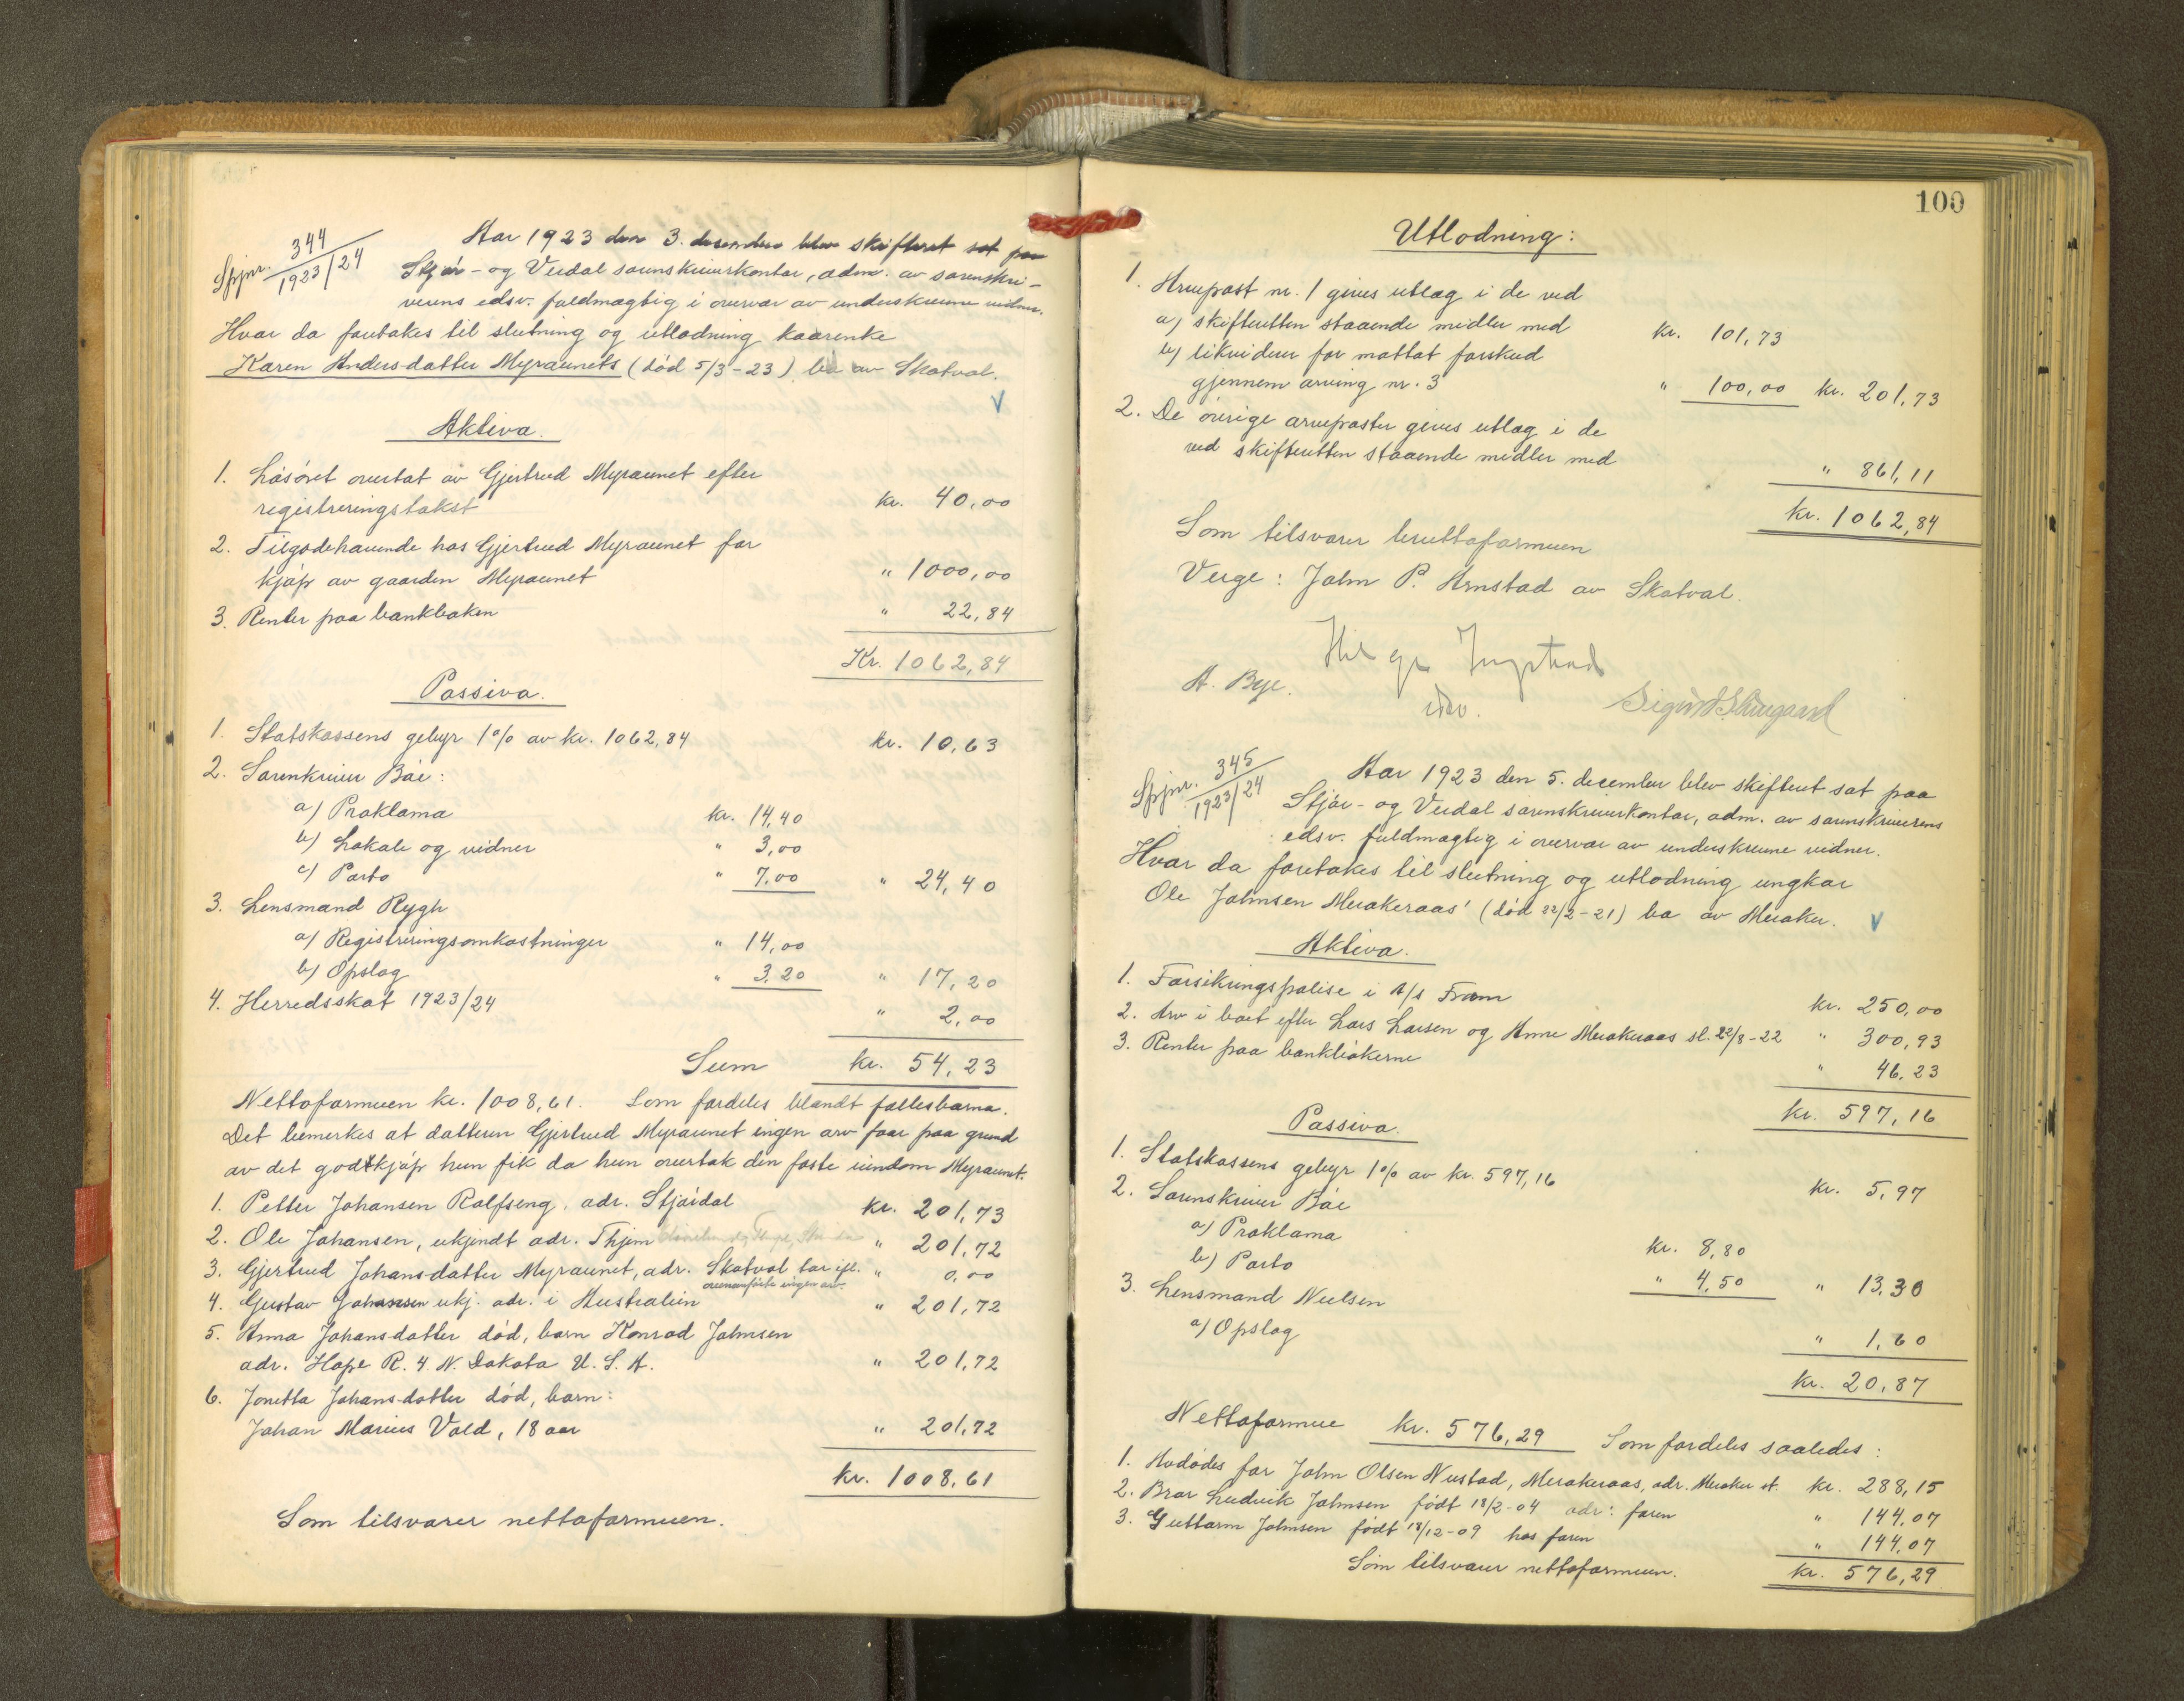 Spjnr. 344
1923/24
Aar 1923 den 3. desember blev skifteret sat paa
Stjør- og Verdal sorenskriverkontor, adm. av sorenskri-
verens edsv. fuldmægtig i overvær av underskrevne vidner.
Hvor da foretokes til slutning og utlodning kaarenke
Karen Andersdatter Myraunets (død 5/3-23) bo av Skatval.
Aktiva.
1. Løsøret overtat av Gjertrud Myraunet efter
registreringstakst kr. 40,00
2. Tilgodehavende hos Gjertrud Myraunet for
kjøp av gaarden Myraunet " 1000,00
3. Renter paa bankboken " 22,84
Kr. 1062,84
Passiva.
1. Statskassens gebyr 1% av kr. 1062,84 kr. 10,63
2. Sorenskriver Bøe:
a) Proklama kr. 14,40
b) Lokale og vidner " 3,00
c) Porto " 7,00 " 24,40
3. Lensmand Rygh
a) Registreringsomkostninger " 14,00
b) Opslag " 3,20 " 17,20
4. Herredsskat 1923/24 " 2,00
Sum kr. 54,23
Nettoformuen kr. 1008,61. Som fordeles blandt fællesbarna.
Det bemerkes at datteren Gjertrud Myraunet ingen arv faar paa grund
av det godtkjøp hun fik da hun overtok den faste eiendom Myraunet.
1. Petter Johansen Ralfseng, adr. Stjørdal kr. 201,73
2. Ole Johansen, ukjendt adr. Thjem " 201,72
3. Gjertrud Johansdatter Myraunet, adr. Skatval tar ifl. " 0,00
ovenanførte ingen arv.
4. Gustav Johansen ukj. adr. i Australien " 201,72
5. Anna Johansdatter død, barn Konrad Johnsen
adr. Hope R. 4 N. Dakota U. S. A. " 201,72
6. Jonetta Johansdatter død, barn:
Johan Marius Vold, 18 aar " 201,72
kr. 1008,61
Som tilsvarer nettoformuen.
100
Utlodning:
1. Arvepost nr. 1 gives utlæg i de ved
a) skifteretten staaende midler med kr. 101,73
b) likviderer for mottat forskud
gjennem arving nr. 3 " 100,00 kr. 201,73
2. De øvrige arveposter gives utlæg i de
ved skifteretten staaende midler med " 861,11
kr. 1062,84
Som tilsvarer bruttoformuen
Verge: John P. Arnstad av Skatval.
Helge Ingstad
A. Bye. edsv.
Spjnr. 345
1923/24
Aar 1923 den 5. december blev skifteret sat paa
Stjør- og Verdal sorenskriverkontor, adm. av sorenskriverens
edsv. fuldmægtig i overvær av underskrevne vidner.
Hvor da foretokes til slutning og utlodning ungkar
Ole Johnsen Merakeraas' (død 22/2-21) bo av Meraker.
Aktiva.
1. Forsikringspolise i A/s Fram kr. 250,00
2. Arv i boet efter Lars Larsen og Anne Merakeraas sl. 22/8-22 " 300,93
3. Renter paa bankbøkerne " 46,23
kr. 597,16
Passiva.
1. Statskassens gebyr 1% av kr. 597,16 kr. 5,97
2. Sorenskriver Bøe
a) Proklama kr. 8,80
b) Porto " 4,50 " 13,30
3. Lensmand Nielsen
a) Opslag " 1,60
kr. 20,87
Nettoformue kr. 576,29 Som fordeles saaledes:
1. Avdødes far John Olsen Nustad, Merakeraas, adr. Meraker st. kr. 288,15
2. Bror Ludvik Johnsen født 18/2-04 adr: faren " 144,07
3. Guttorm Johnsen født 18/12-09 hos faren " 144,07
Som tilsvarer nettoformuen. kr. 576,29